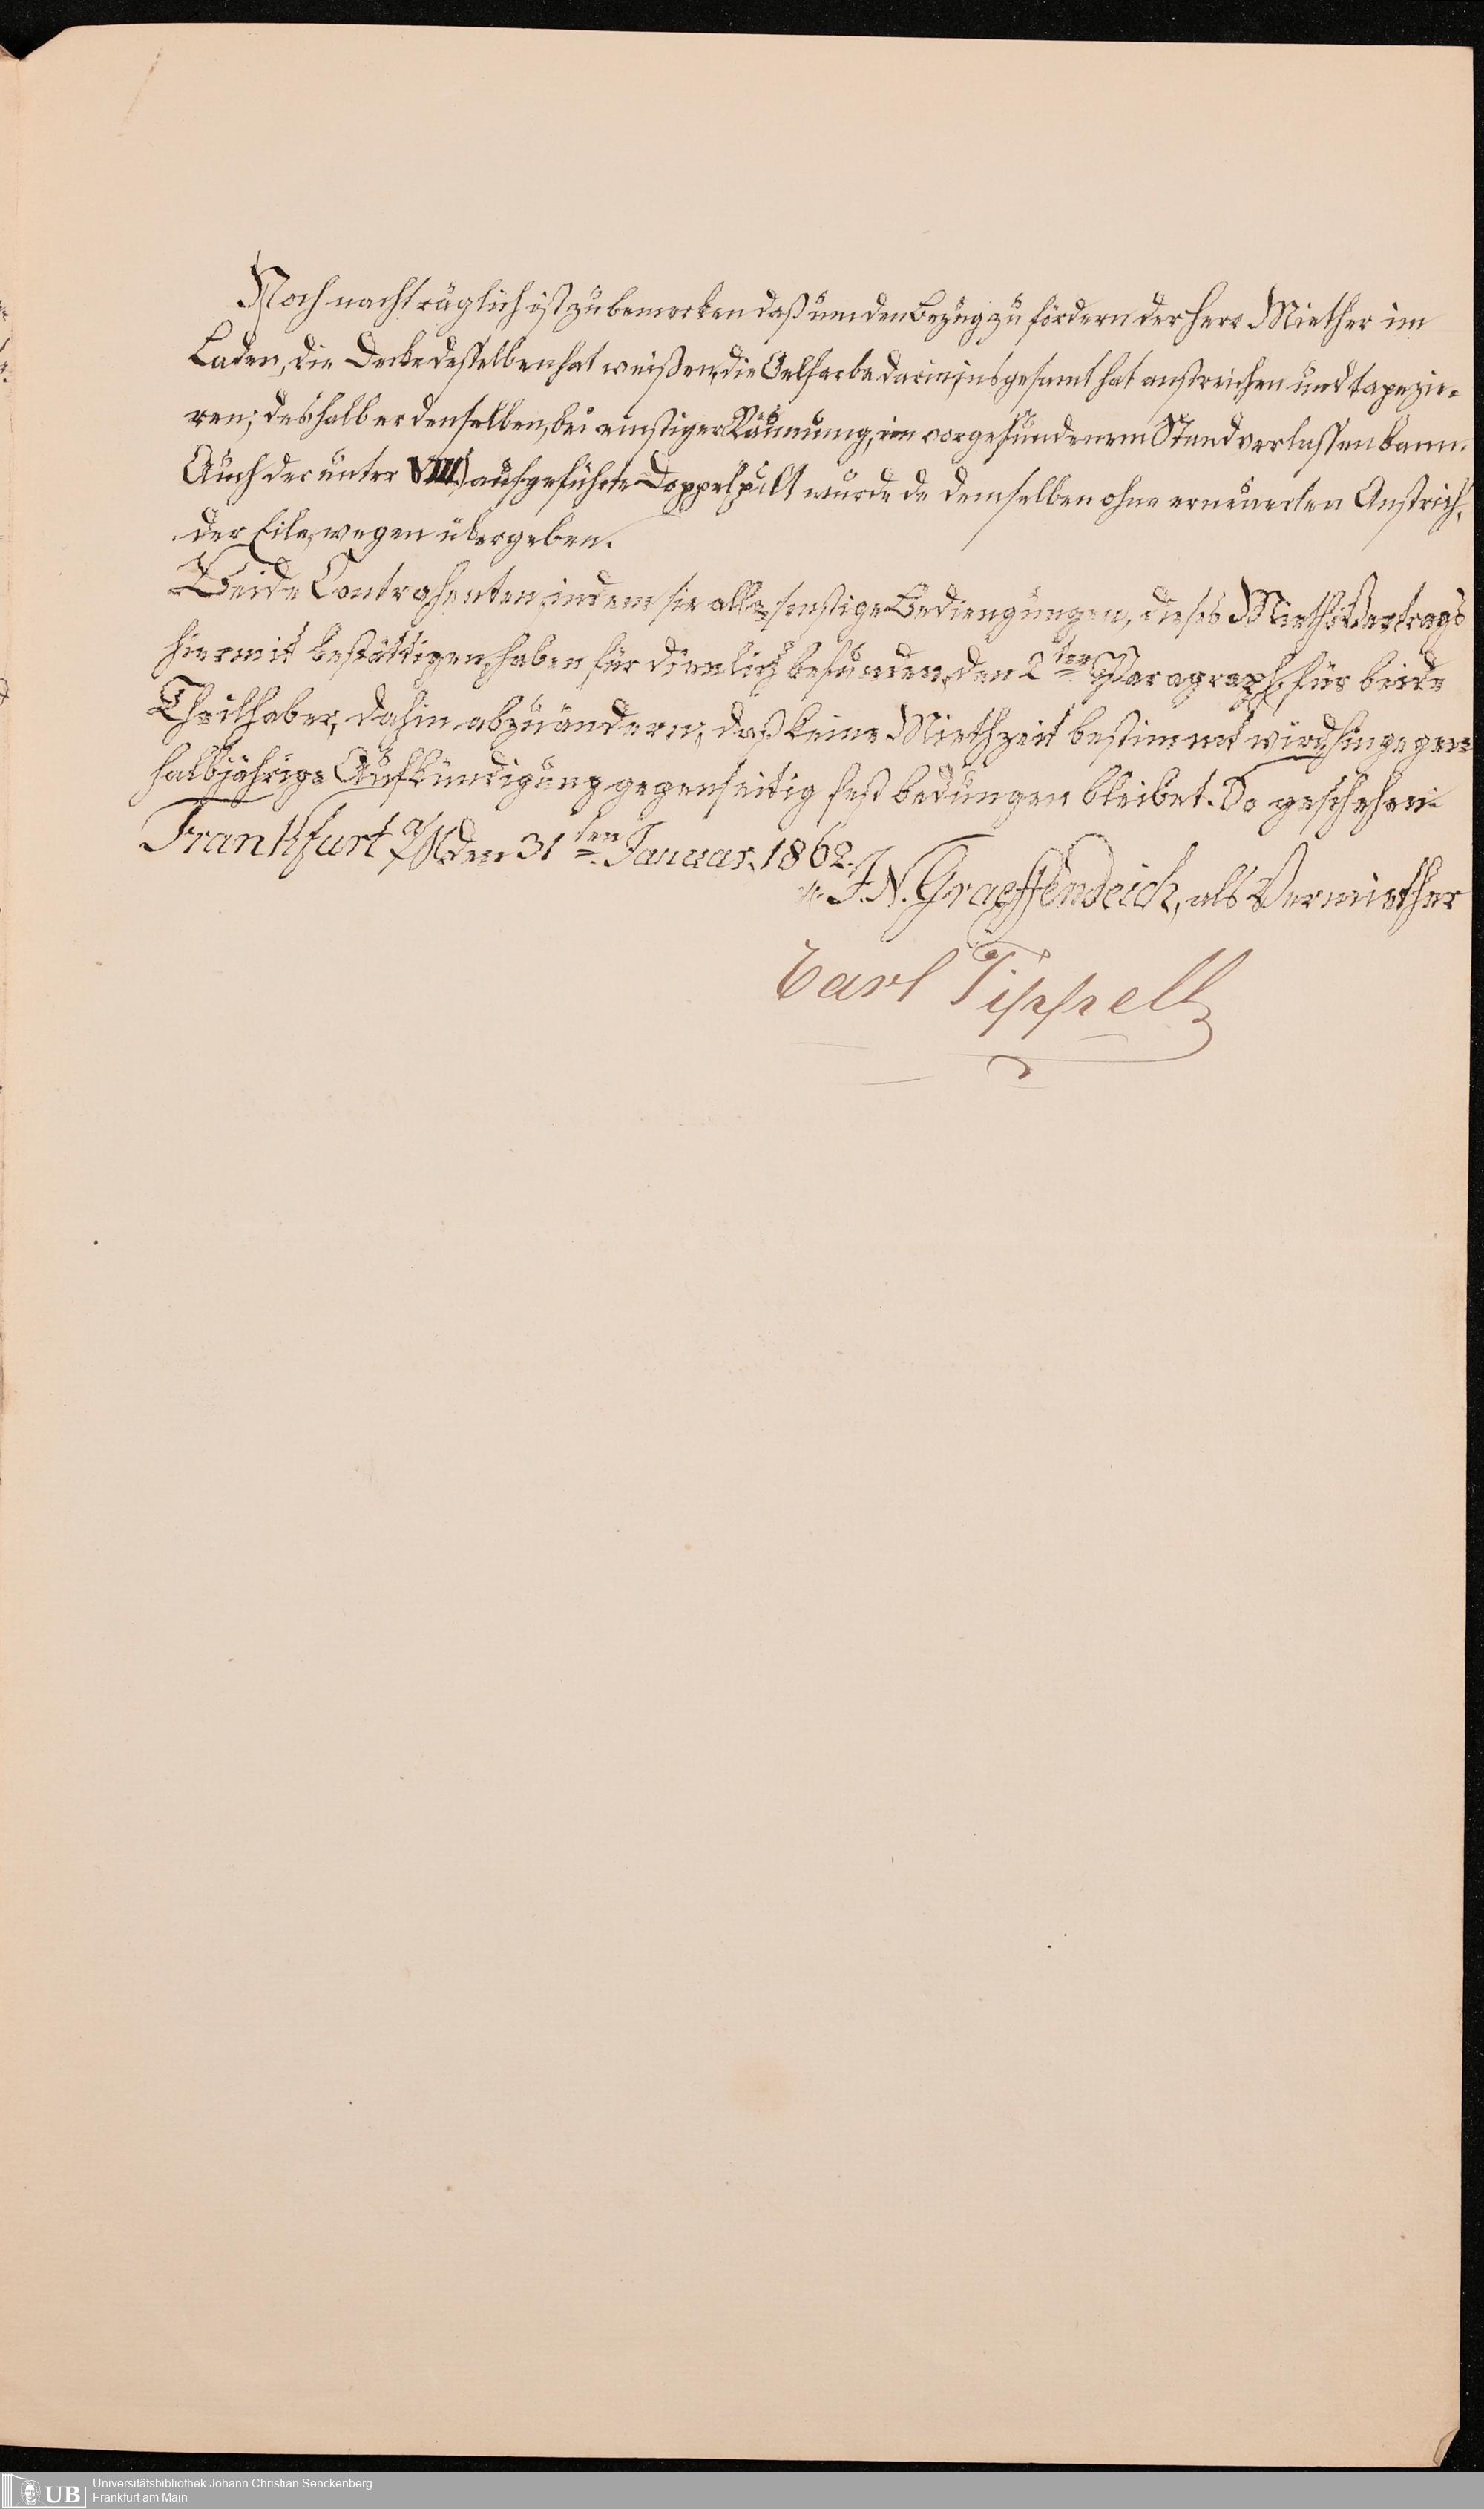 Noch nachträglich ist zu bemerken daß um den Bezug zu fördern der Herr Miether im
Laden, die Decke desselben hat weißen, die Oelfarbe darin, insgesamt hat anstreichen und tapezie-
ren; deshalb er denselben, bei einstiger Räumung, im vorgefundenem Stand verlassen kann.
Auch der unter VIII.) aufgeführte Doppelpult wurde de demselben ohne erneuerten Anstrich,
der Eile, wegen übergeben.
Beide Contrahenten, indem sie alle sonstige Bediengungen, dieses Miethvertrags
hiermit bestättigen, haben für dienlich befunden, den 2ten Paragraph, für beide
Theilhaber, dahin abzuändern, daß keine Miethzeit bestimmt wird, hingegen
halbjährige Aufkündigung gegenseitig fest bedungen bleibet. So geschehen
Frankfurt a/M den 31ten Januar 1862.
J. N. Graeffendeich, als Vermiether
Carl Tippell
UB
Universitätsbibliothek Johann Christian Senckenberg
Frankfurt am Main